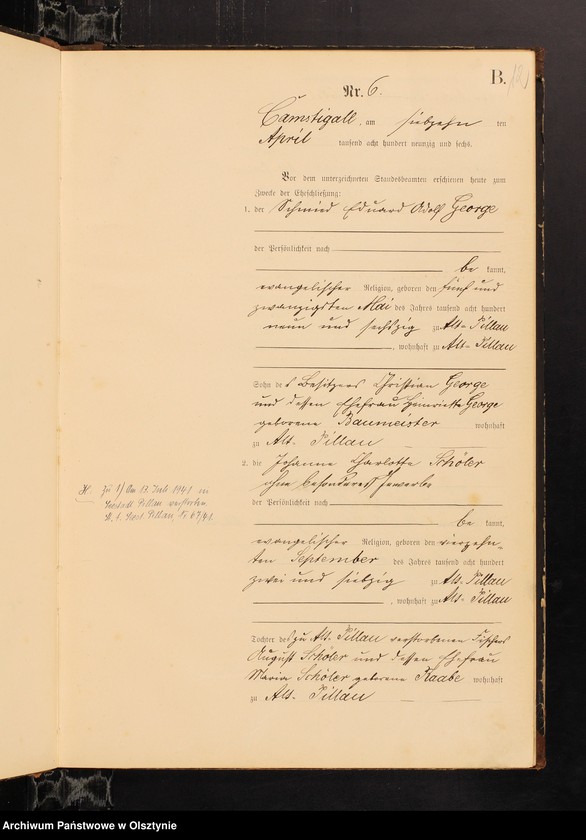 B.
12
Nr. 6.
Camstigall, am siebzehn ten
April tausend acht hundert neunzig und sechs.
Vor dem unterzeichneten Standesbeamten erschienen heute zum
Zwecke der Eheschließung:
1. der Schmied Eduard Adolf George
der Persönlichkeit nach
be kannt,
evangelischer Religion, geboren den fünf und
zwanzigsten Mai des Jahres tausend acht hundert
neun und sechszig zu Alt-Pillau
, wohnhaft zu Alt-Pillau
Sohn des Besitzers Christian George
und dessen Ehefrau Heinriette George
geborene Baumeister wohnhaft
zu Alt-Pillau
2. die Johanne Charlotte Schöler
ohne besonderes Gewerbe
der Persönlichkeit nach
be kannt,
evangelischer Religion, geboren den vierzehn-
ten September des Jahres tausend acht hundert
zwei und siebzig zu Alt-Pillau
, wohnhaft zu Alt-Pillau
Tochter des zu Alt-Pillau verstorbenen Fischers
August Schöler und dessen Ehefrau
Maria Schöler geborene Raabe wohnhaft
zu Alt-Pillau
H. Zu 1) Am 13. 1941 in
Seestadt Pillau verstorben.
St. A. Seest. Pillau, Nr. 67/41.
Archiwum Państwowe w Olsztynie